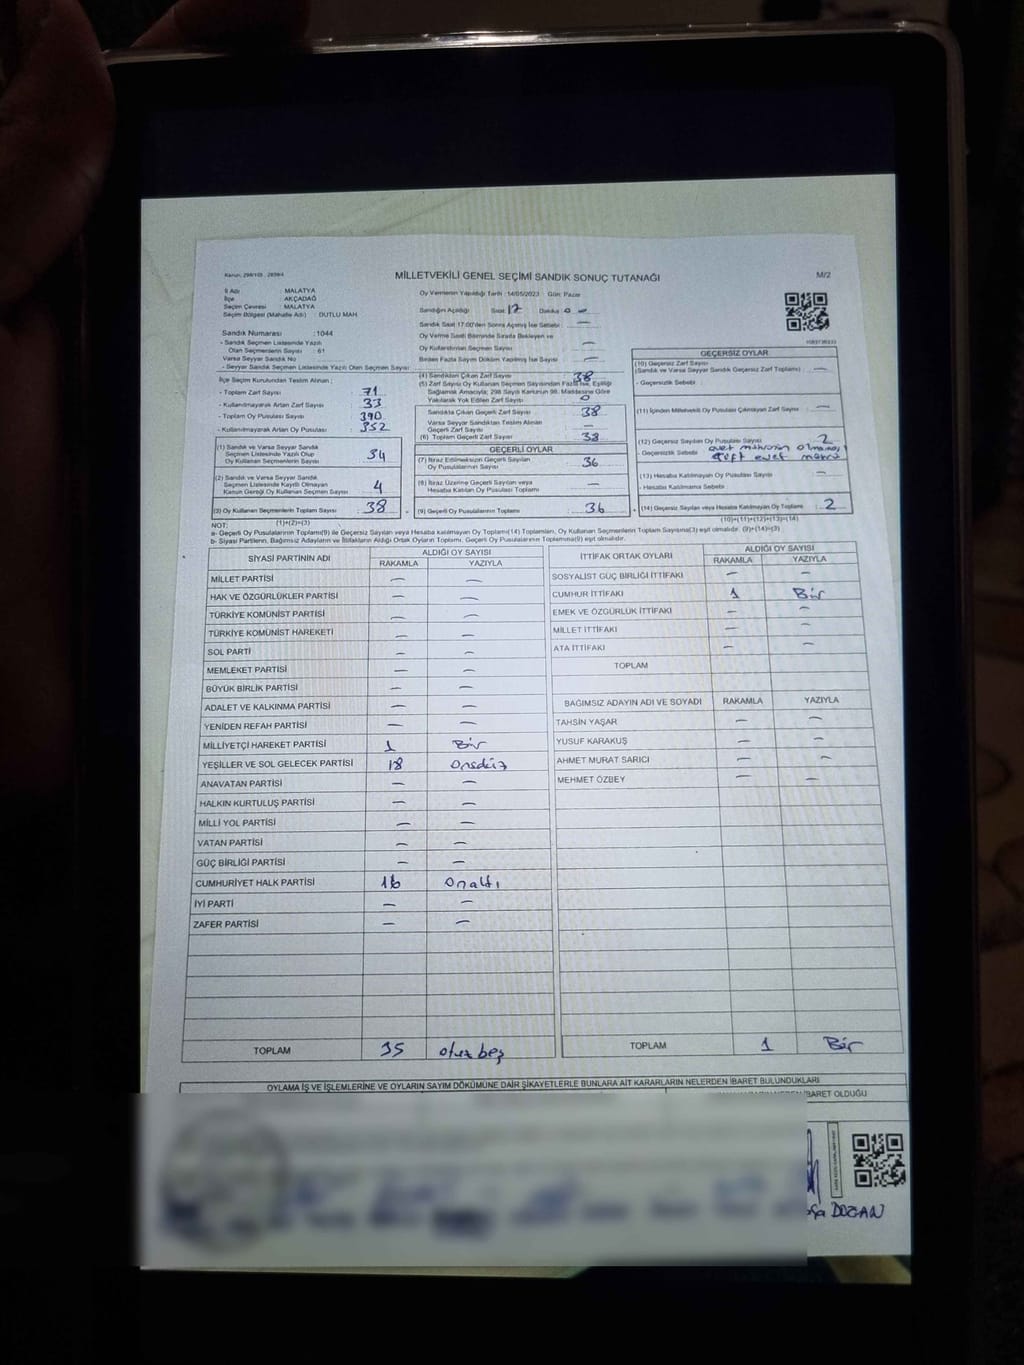 Kanun: 298/105 , 2839/4
MİLLETVEKİLİ GENEL SEÇİMİ SANDIK SONUÇ TUTANAĞI
M/2
İl Adı : MALATYA
İlçe : AKÇADAĞ
Seçim Çevresi : MALATYA
Seçim Bölgesi (Mahalle Adı) : DUTLU MAH.
Sandık Numarası : 1044
- Sandık Seçmen Listesinde Yazılı
Olan Seçmenlerin Sayısı : 61
Varsa Seyyar Sandık No
- Seyyar Sandık Seçmen Listesinde Yazılı Olan Seçmen Sayısı
İlçe Seçim Kurulundan Teslim Alınan ;
- Toplam Zarf Sayısı 71
- Kullanılmayarak Artan Zarf Sayısı 33
- Toplam Oy Pusulası Sayısı 390
- Kullanılmayarak Artan Oy Pusulası 352
(1) Sandık ve Varsa Seyyar Sandık
Seçmen Listesinde Yazılı Olup
Oy Kullanan Seçmenlerin Sayısı 34
(2) Sandık ve Varsa Seyyar Sandık
Seçmen Listesinde Kayıtlı Olmayan
Kanun Gereği Oy Kullanan Seçmen Sayısı 4
(3) Oy Kullanan Seçmenlerin Toplam Sayısı 38
(1)+(2)=(3)
Oy Vermenin Yapıldığı Tarih : 14/05/2023 Gün: Pazar
Sandığın Açıldığı Saat 17 Dakika 00
Sandık Saat 17:00'den Sonra Açılmış İse Sebebi : —
Oy Verme Saati Bitiminde Sırada Bekleyen ve
Oy Kullandırılan Seçmen Sayısı —
Birden Fazla Sayım Döküm Yapılmış İse Sayısı —
(4) Sandıktan Çıkan Zarf Sayısı 38
(5) Zarf Sayısı Oy Kullanan Seçmen Sayısından Fazla İse, Eşitliği
Sağlamak Amacıyla; 298 Sayılı Kanunun 98. Maddesine Göre
Yakılarak Yok Edilen Zarf Sayısı 0
Sandıkta Çıkan Geçerli Zarf Sayısı 38
Varsa Seyyar Sandıktan Teslim Alınan
Geçerli Zarf Sayısı —
(6) Toplam Geçerli Zarf Sayısı 38
GEÇERLİ OYLAR
(7) İtiraz Edilmeksizin Geçerli Sayılan
Oy Pusulalarının Sayısı 36
(8) İtiraz Üzerine Geçerli Sayılan veya
Hesaba Katılan Oy Pusulası Toplamı —
(9) Geçerli Oy Pusulalarının Toplamı 36
GEÇERSİZ OYLAR
(10) Geçersiz Zarf Sayısı
(Sandık ve Varsa Seyyar Sandık Geçersiz Zarf Toplamı) —
- Geçersizlik Sebebi
(11) İçinden Milletvekili Oy Pusulası Çıkmayan Zarf Sayısı —
(12) Geçersiz Sayılan Oy Pusulası Sayısı 2
- Geçersizlik Sebebi evet mührünün olmaması
Çift evet mührü
(13) Hesaba Katılmayan Oy Pusulası Sayısı —
- Hesaba Katılmama Sebebi
(14) Geçersiz Sayılan veya Hesaba Katılmayan Oy Toplamı 2
(10)+(11)+(12)+(13)=(14)
NOT:
a- Geçerli Oy Pusulalarının Toplamı(9) ile Geçersiz Sayılan veya Hesaba katılmayan Oy Toplamı(14) Toplamları, Oy Kullanan Seçmenlerin Toplam Sayısına(3) eşit olmalıdır. (9)+(14)=(3)
b- Siyasi Partilerin, Bağımsız Adayların ve İttifakların Aldığı Ortak Oyların Toplamı, Geçerli Oy Pusulasının Toplamına(9) eşit olmalıdır.
SİYASİ PARTİNİN ADI ALDIĞI OY SAYISI
RAKAMLA YAZIYLA
MİLLET PARTİSİ — —
HAK VE ÖZGÜRLÜKLER PARTİSİ — —
TÜRKİYE KOMÜNİST PARTİSİ — —
TÜRKİYE KOMÜNİST HAREKETİ — —
SOL PARTİ — —
MEMLEKET PARTİSİ — —
BÜYÜK BİRLİK PARTİSİ — —
ADALET VE KALKINMA PARTİSİ — —
YENİDEN REFAH PARTİSİ — —
MİLLİYETÇİ HAREKET PARTİSİ 1 Bir
YEŞİLLER VE SOL GELECEK PARTİSİ 18 Onsekiz
ANAVATAN PARTİSİ — —
HALKIN KURTULUŞ PARTİSİ — —
MİLLİ YOL PARTİSİ — —
VATAN PARTİSİ — —
GÜÇ BİRLİĞİ PARTİSİ — —
CUMHURİYET HALK PARTİSİ 16 Onaltı
İYİ PARTİ — —
ZAFER PARTİSİ — —
TOPLAM 35 otuz beş
İTTİFAK ORTAK OYLARI ALDIĞI OY SAYISI
RAKAMLA YAZIYLA
SOSYALİST GÜÇ BİRLİĞİ İTTİFAKI — —
CUMHUR İTTİFAKI 1 Bir
EMEK VE ÖZGÜRLÜK İTTİFAKI — —
MİLLET İTTİFAKI — —
ATA İTTİFAKI — —
TOPLAM
BAĞIMSIZ ADAYIN ADI VE SOYADI RAKAMLA YAZIYLA
TAHSİN YAŞAR — —
YUSUF KARAKUŞ — —
AHMET MURAT SARICI — —
MEHMET ÖZBEY — —
TOPLAM 1 Bir
OYLAMA İŞ VE İŞLEMLERİNE VE OYLARIN SAYIM DÖKÜMÜNE DAİR ŞİKAYETLERLE BUNLARA AİT KARARLARIN NELERDEN İBARET BULUNDUKLARI
İBARET OLDUĞU
DOĞAN